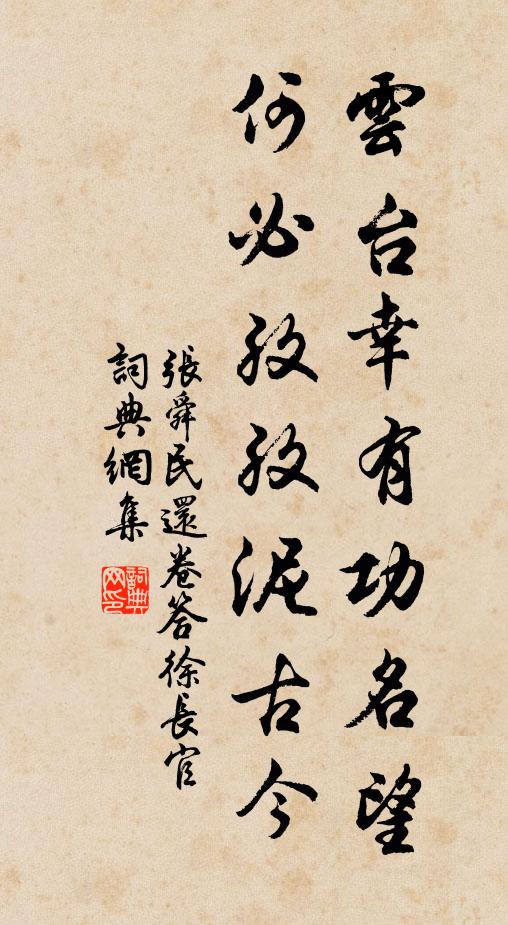 雲台幸有功名望
何必孜孜泥古今
張舜民還卷答徐長官
詞典網集
詞典網印